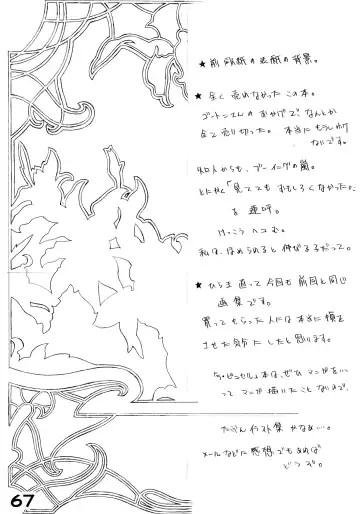 ★ 前回紙の表紙の背景。
★ 全く売れなかったこの本。
ブートンさんのおかげでなんとか
全て売り切った。本当にもうしわけ
ないです。
知人からも、ブーイングの嵐。
とにかく「見ててもおもしろくなかった。」
を連呼。
けっこうヘコむ。
私は、ほめられると伸びるるだって。
★ ひらき直って今回も前回と同じ
画集です。
買ってもらった人には本当に損を
させた気分にしたと思います。
本は、ぜひマンガを…
ってマンガ描いたことないので、
たぶんイラスト集かなぁ…。
メールなどに感想でもあれば
どうぞ。
67